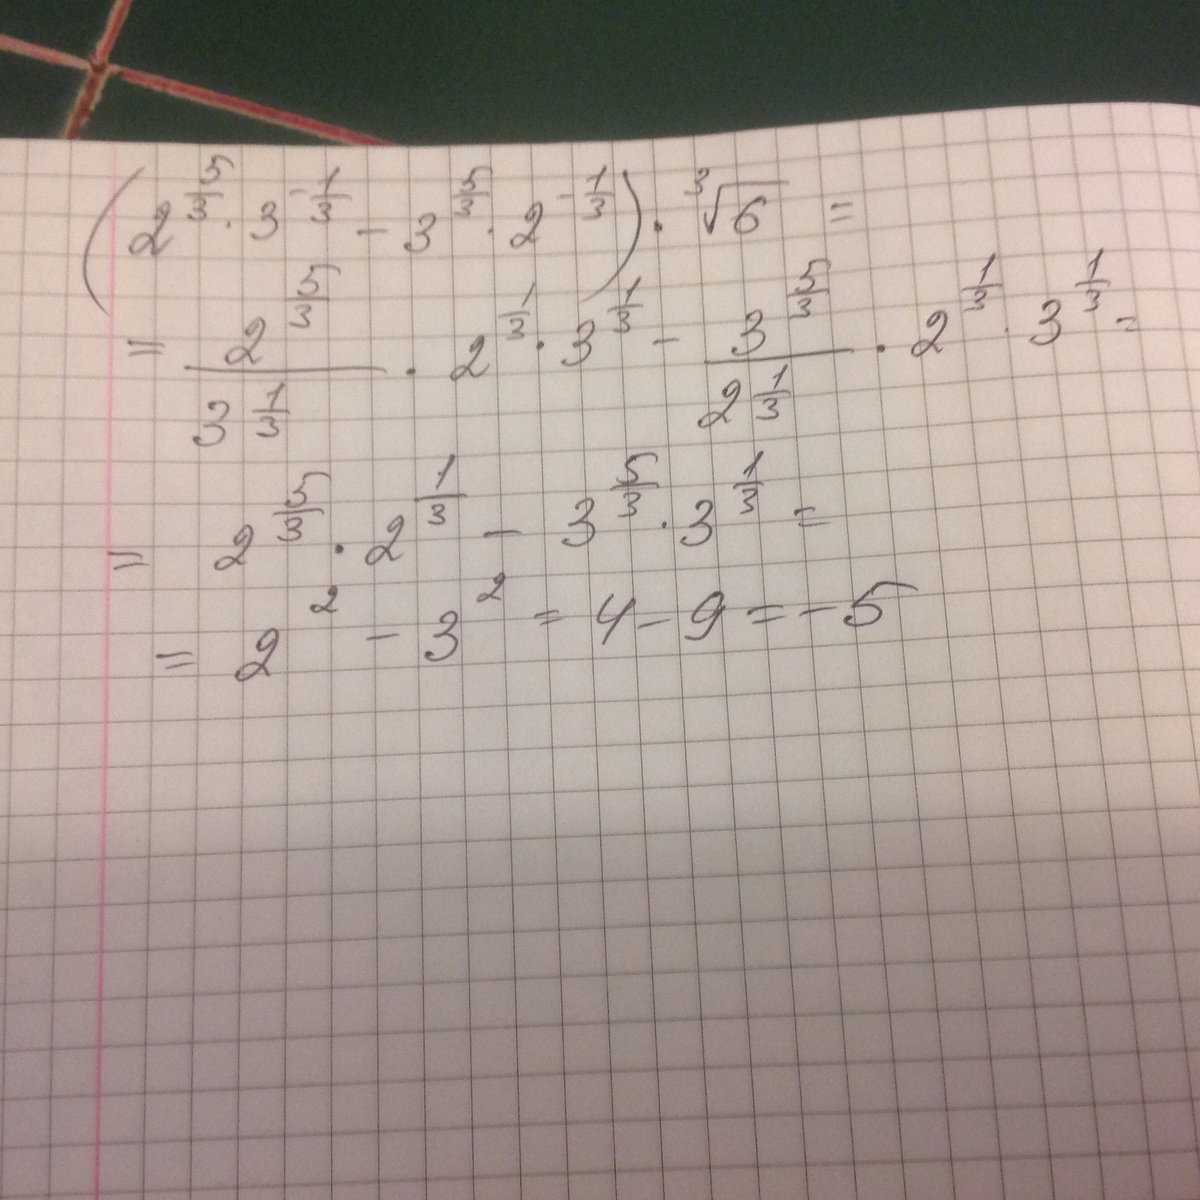 (2^(5/3) · 3^(-1/3) - 3^(5/3) · 2^(-1/3)) · ∛6 =
= 2^(5/3)/3^(1/3) · 2^(1/3) · 3^(1/3) - 3^(5/3)/2^(1/3) · 2^(1/3) · 3^(1/3) =
= 2^(5/3) · 2^(1/3) - 3^(5/3) · 3^(1/3) =
= 2^2 - 3^2 = 4 - 9 = -5